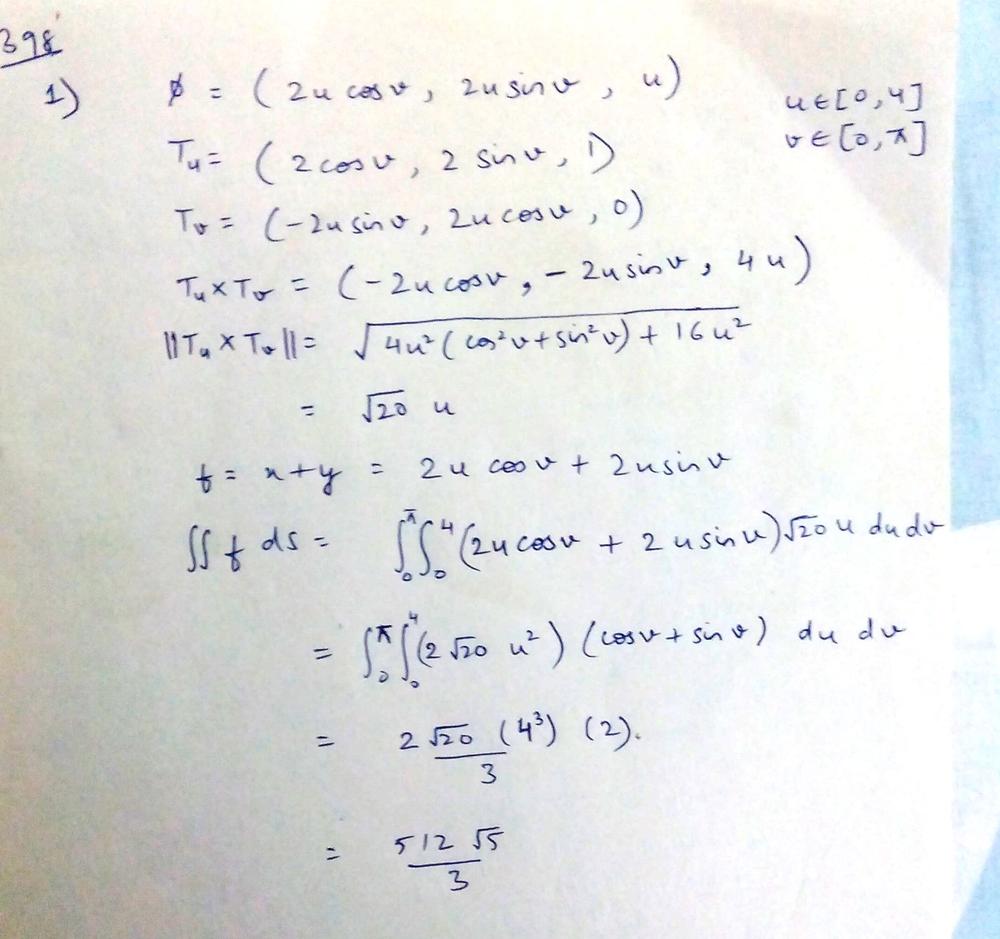 398
1) ϕ = (2u cos v, 2u sin v, u) u ∈ [0, 4]
v ∈ [0, π]
T_u = (2 cos v, 2 sin v, 1)
T_v = (-2u sin v, 2u cos v, 0)
T_u × T_v = (-2u cos v, -2u sin v, 4u)
||T_u × T_v|| = √(4u²(cos²v + sin²v) + 16u²)
= √20 u
f = x + y = 2u cos v + 2u sin v
∬ f ds = ∫₀^π ∫₀^4 (2u cos v + 2u sin v) √20 u du dv
= ∫₀^π ∫₀^4 (2 √20 u²) (cos v + sin v) du dv
= 2 √20 / 3 (4³) (2).
= 512 √5 / 3